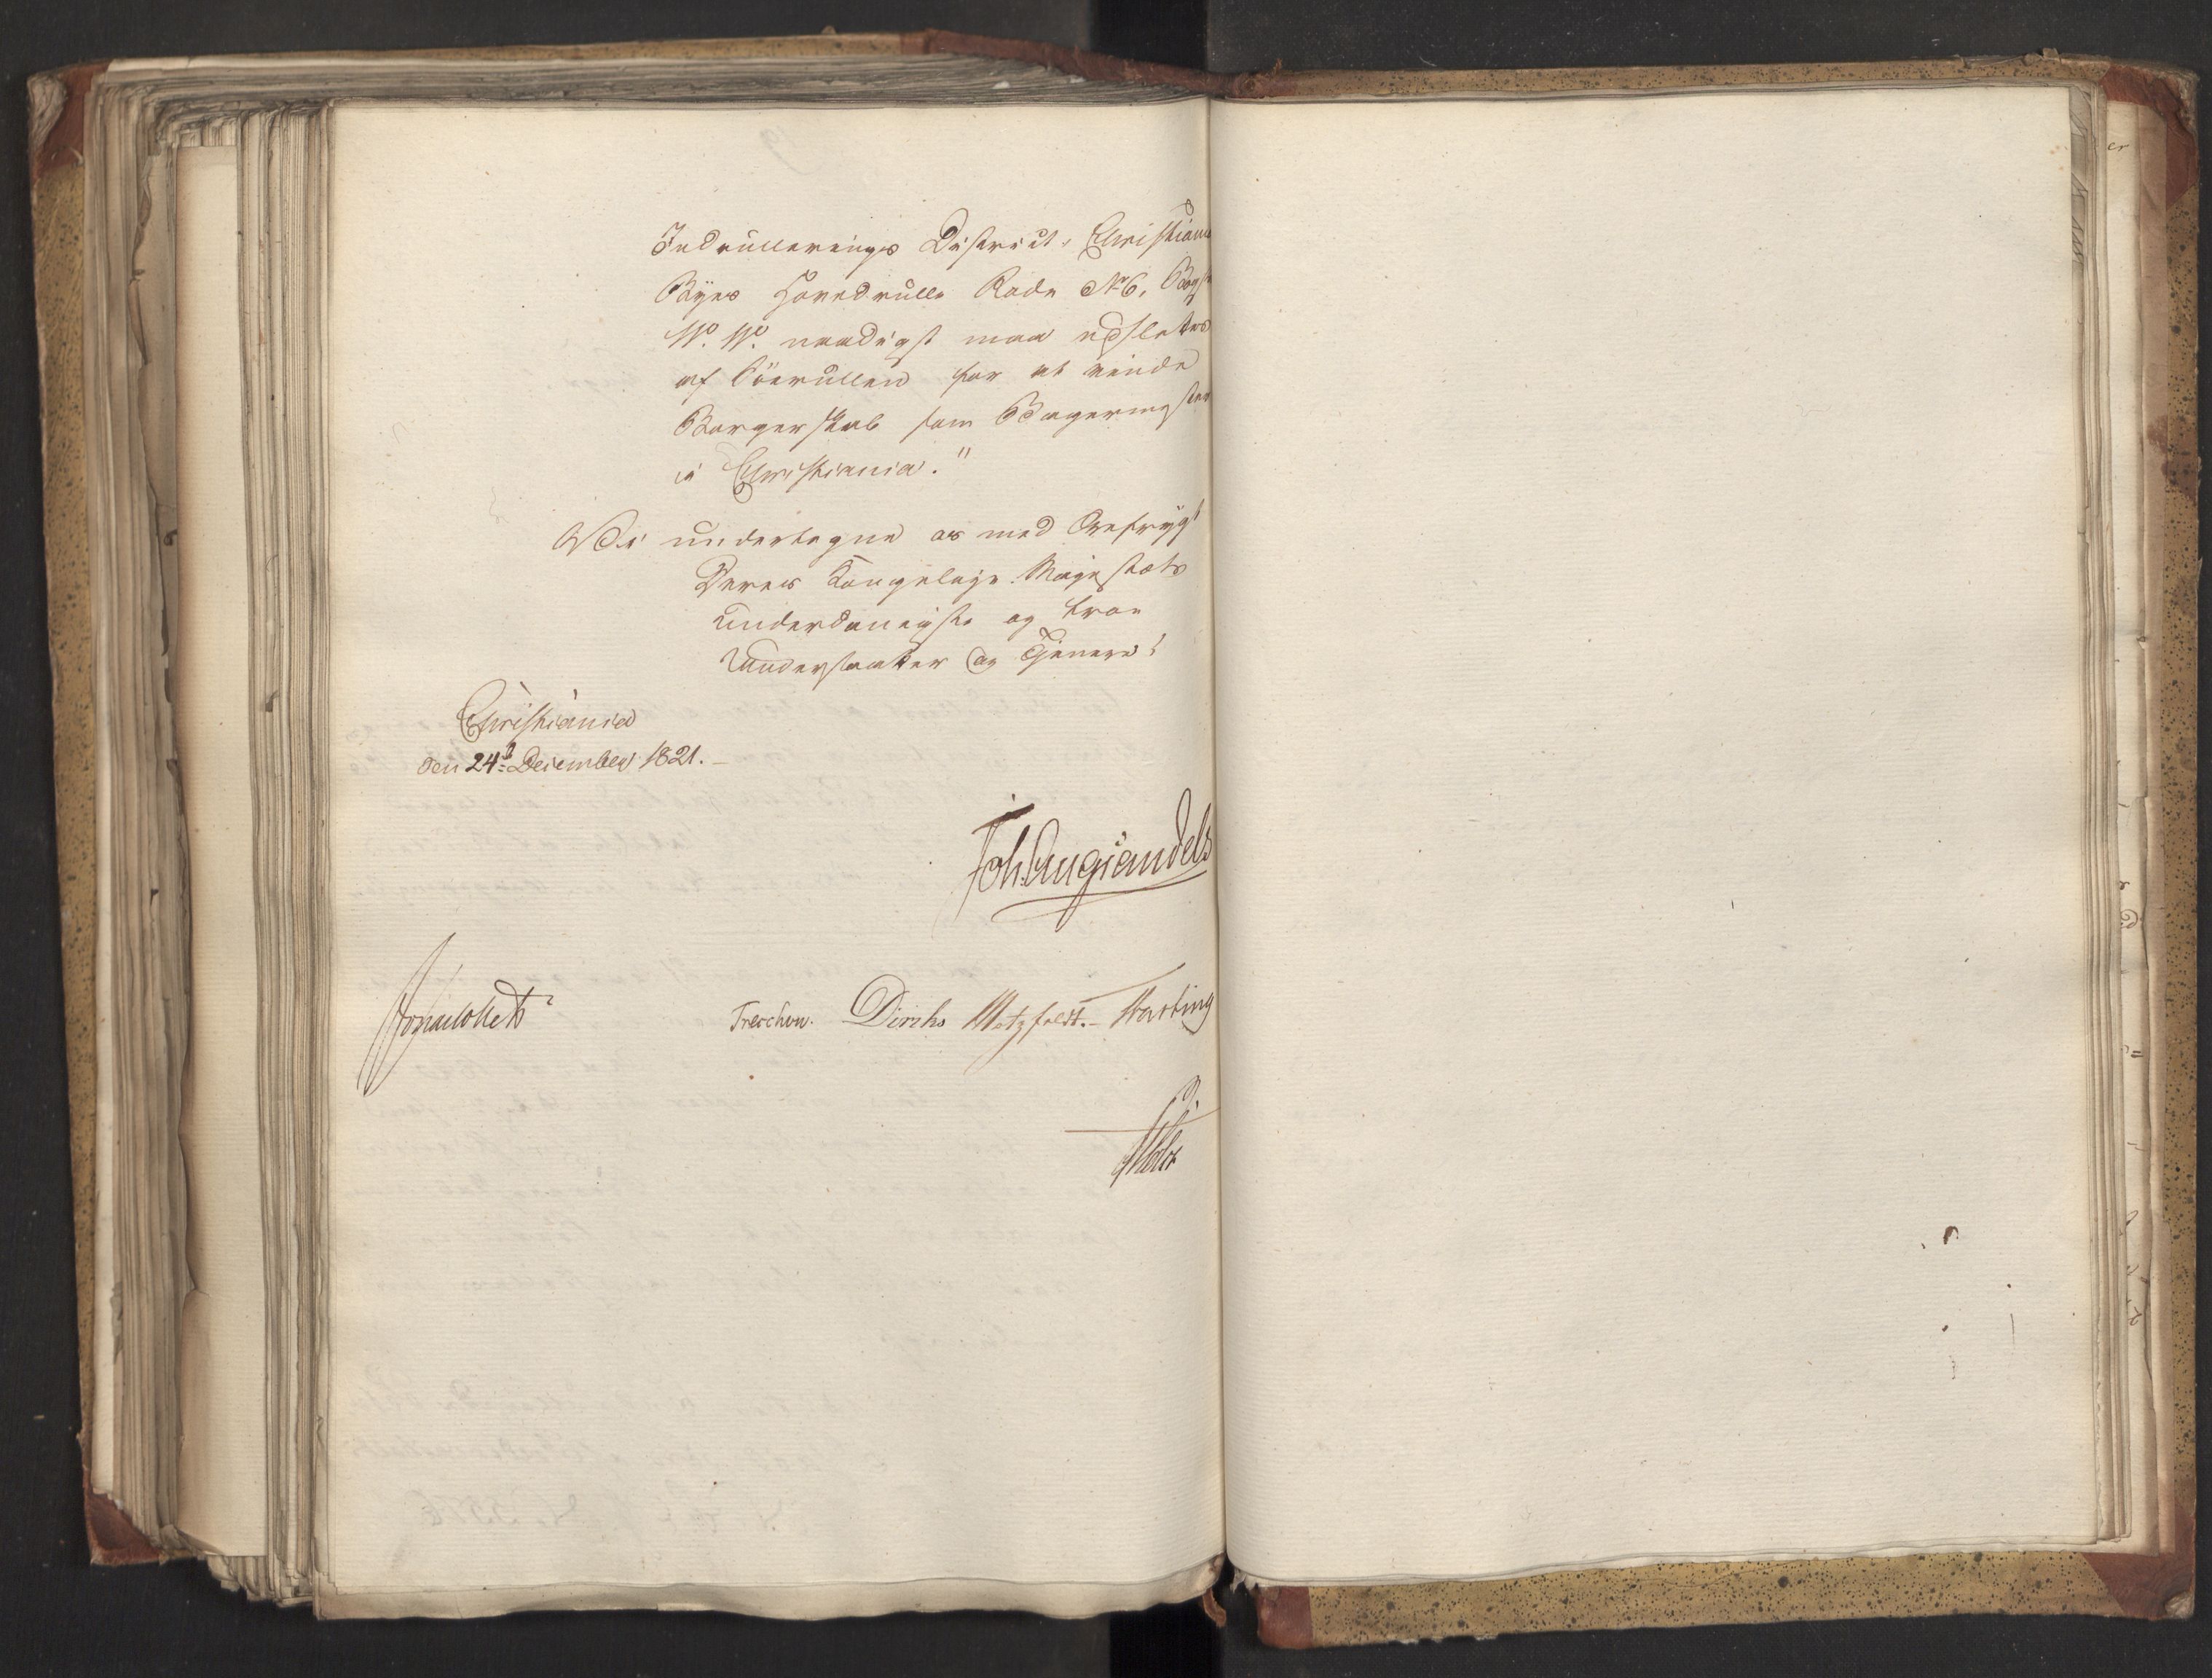 Indrullerings District, Christiania
Byes Hovedrulle Rode No 6, Bogst
W. W. naadigst maa udslettes
af Söerullen for at vinde
Borgerskab som Bagermester
i Christiania."
Vi undertegne os med Ærefrygt
Deres Kongelige Majestæts
underdanigste og troe
Undersaatter og Tjenere!
Christiania
den 24de December 1821.
Joh. Aug. Sandels
Sommerhielm
Treschow. Diriks Motzfeldt. Hasting
Holst